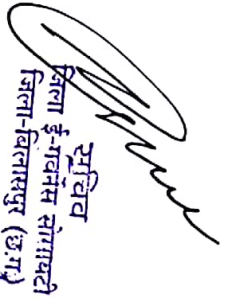 सचिव
जिला ई-गवर्नेंस सोसायटी
जिला-बिलासपुर (छ.ग.)